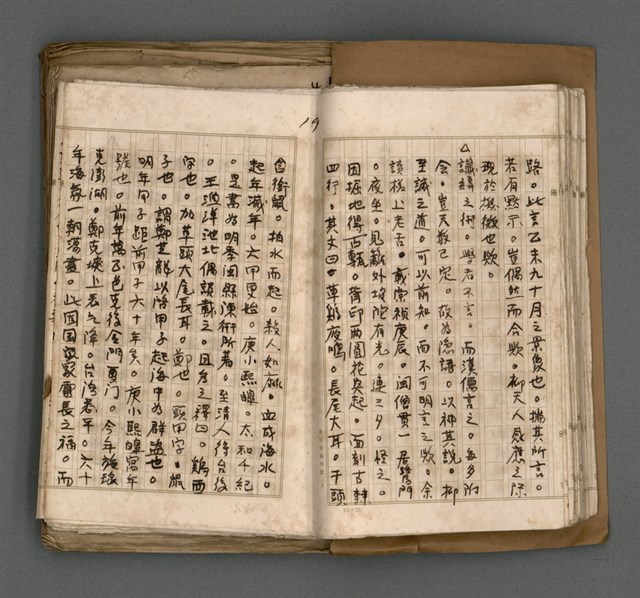 路。此言乙未九十月之景象也。揣其所言。
若有默示。豈偶然而合歟。抑天人感應之際
現於機微也歟。
△
讖緯之術。學者不言。而漢儒言之。每多附
會。豈天數已定。故為隱語。以神其說。抑
至誠之道。可以前知。而不可明言之歟。余
讀槎上老舌。載崇禎庚辰。閩僧貫一居鷺門
。夜坐。見籬外坡陀有光。連三夕。怪之。
因掘地得古甎。背印兩圓花突起。面刻古隸
四行。其文曰。草雞夜鳴。長尾大耳。干頭
19
銜鼠。拍水而起。殺人如麻。血成海水。
起年滅年。六甲更始。庚小熙皞。太和千紀
。是書為明季閩縣陳衎所著。至清人得台後
。王漁洋池北偶談載之。因為之釋曰。鷄酉
字也。加草頭大尾長耳。鄭也。干頭甲字。鼠
子也。謂鄭芝龍以天啟甲子起海中為群盜也。
明年甲子距前甲子六十年矣。庚小熙皞寓年
號也。前年萬乙色克復金門廈門。今年施琅
克澎湖。鄭克塽上表乞降。台灣悉平。六十
年海氛一朝滌盡。此固國家靈長之福。而